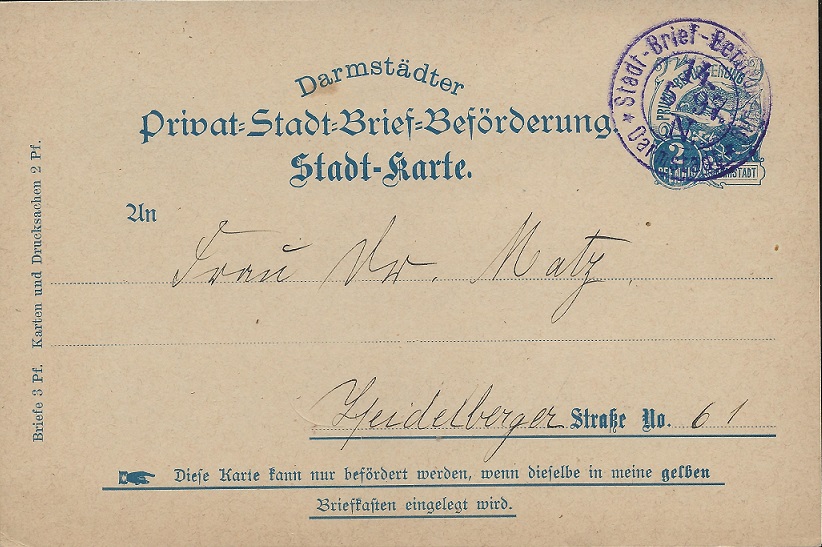 Darmstädter
Privat-Stadt-Brief-Beförderung.
Stadt-Karte.
An
Frau Dr. Matz.
Heidelberger Straße No. 61
☛ Diese Karte kann nur befördert werden, wenn dieselbe in meine gelben
Briefkasten eingelegt wird.
Briefe 3 Pf. Karten und Drucksachen 2 Pf.
* Stadt-Brief-
97
PRIVAT-
2
PFENNIG